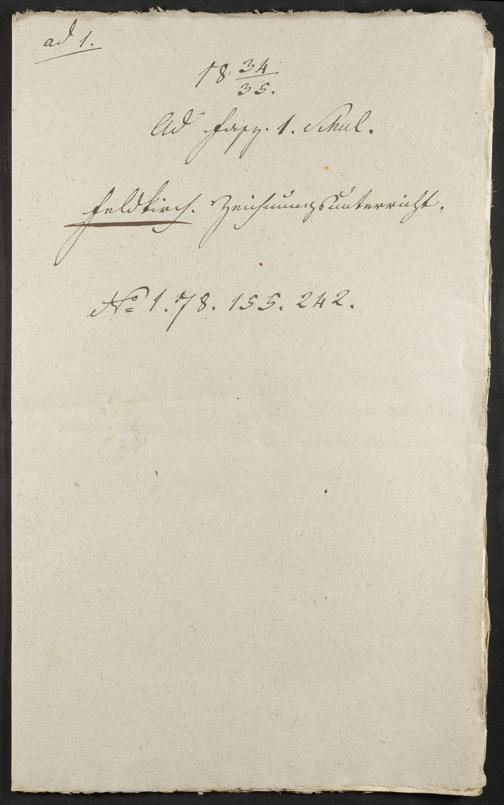 ad 1.
18 34/35.
Ad Fasz. 1. Schul.
Feldkirch. Zeichnungsunterricht.
No 1. 78. 155. 242.